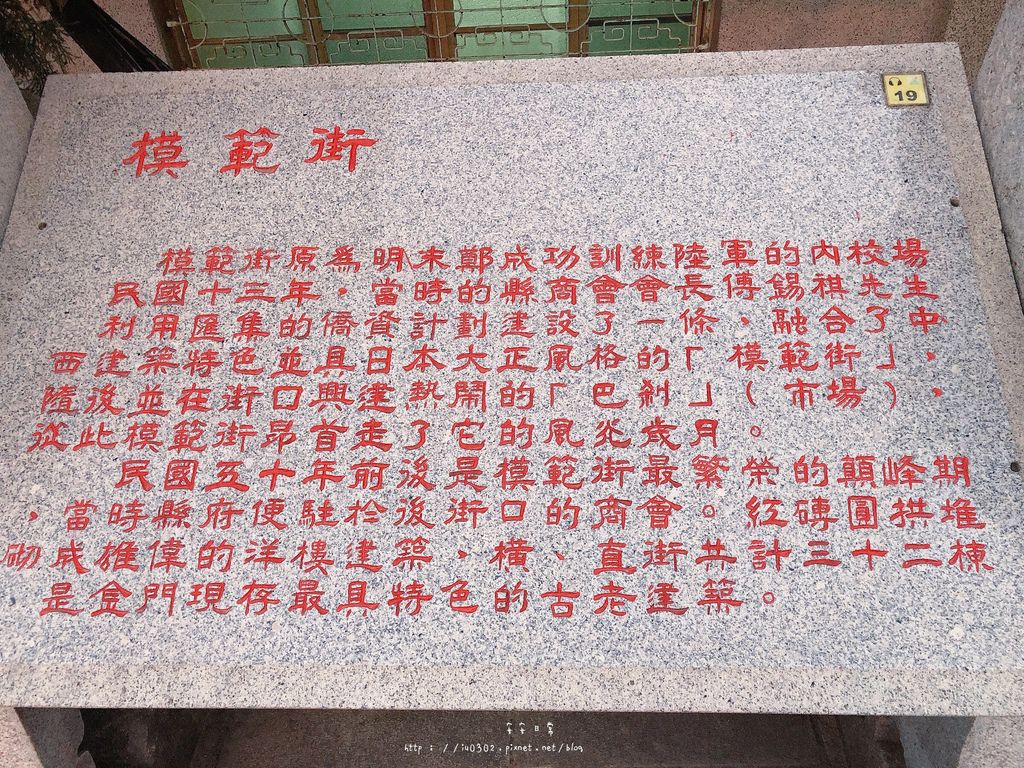 19
模範街
模範街原為明末鄭成功訓練陸軍的內校場
民國十三年，當時的縣商會會長傅錫祺先生
利用匯集的僑資計劃建設了一條，融合了中
西建築特色並具日本大正風格的「模範街」，
隨後並在街口興建熱鬧的「巴剎」（市場），
從此模範街昂首走了它的風光歲月。
民國五十年前後是模範街最繁榮的顛峰期
，當時縣府便駐於後街口的商會。紅磚圓拱堆
砌成雄偉的洋樓建築，橫、直街共計三十二棟
是金門現存最具特色的古老建築。
http://iu0302.pixnet.net/blog